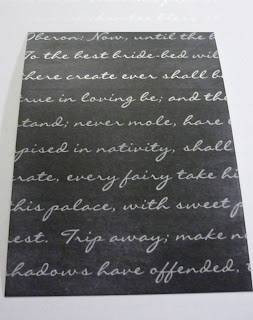 Oberon: Now, until the b
To the best bride-bed wil
there create ever shall b
true in loving be; and the
tand; never mole, hare l
pised in nativity, shall
rate, every fairy take hi
this palace, with sweet p
est. Trip away; make n
hadows have offended, t